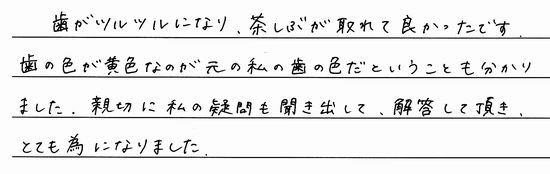 歯がツルツルになり、茶しぶが取れて良かったです.
歯の色が黄色なのが元の私の歯の色だということも分かり
ました. 親切に私の疑問も聞き出して、解答して頂き、
とても為になりました.